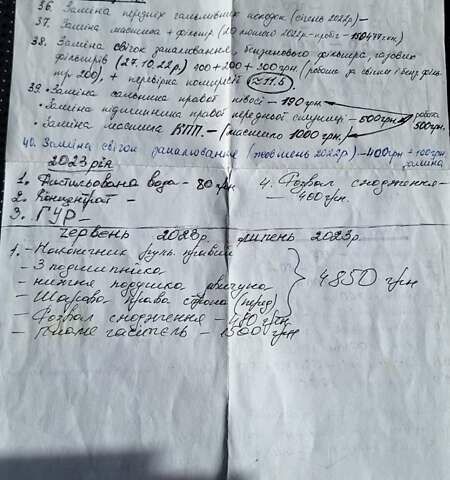 36. Заміна передніх гальмівних колодок (січень 2022р) —
37. Заміна масника + фільтр (20 лютого 2022р - пробіг - 150477 км)
38. Заміна свічок запалювання, бензинового фільтра, газових
фільтрів (27.10.22р) 100 + 200 + 300 грн (робота за свічки і бенз. філь-
тр 200), + перевірка компресії ≈ 11.5
39. • Заміна сальника правої півосі — 190 грн
• Заміна підшипника правої передньої ступиці — 600 грн
робота 500 грн.
• Заміна масника КПП. — (масло 1000 грн)
40. Заміна свічок запалювання (жовтень 2022р) — 400 грн + 100 грн заміна
2023 рік
1. Дистильована вода — 80 грн
2. Концентрат —
3. ГУР —
4. Розвал сходження —
— 400 грн.
червень 2023р. липень 2023р.
1. — Наконечник рульов. правий
— 3 подшипніка
— нижня подушка двигуна
— Шарова права строна (перед)
4850 грн
— Розвал сходження — 480 грн
— гаситель — 1500 грн